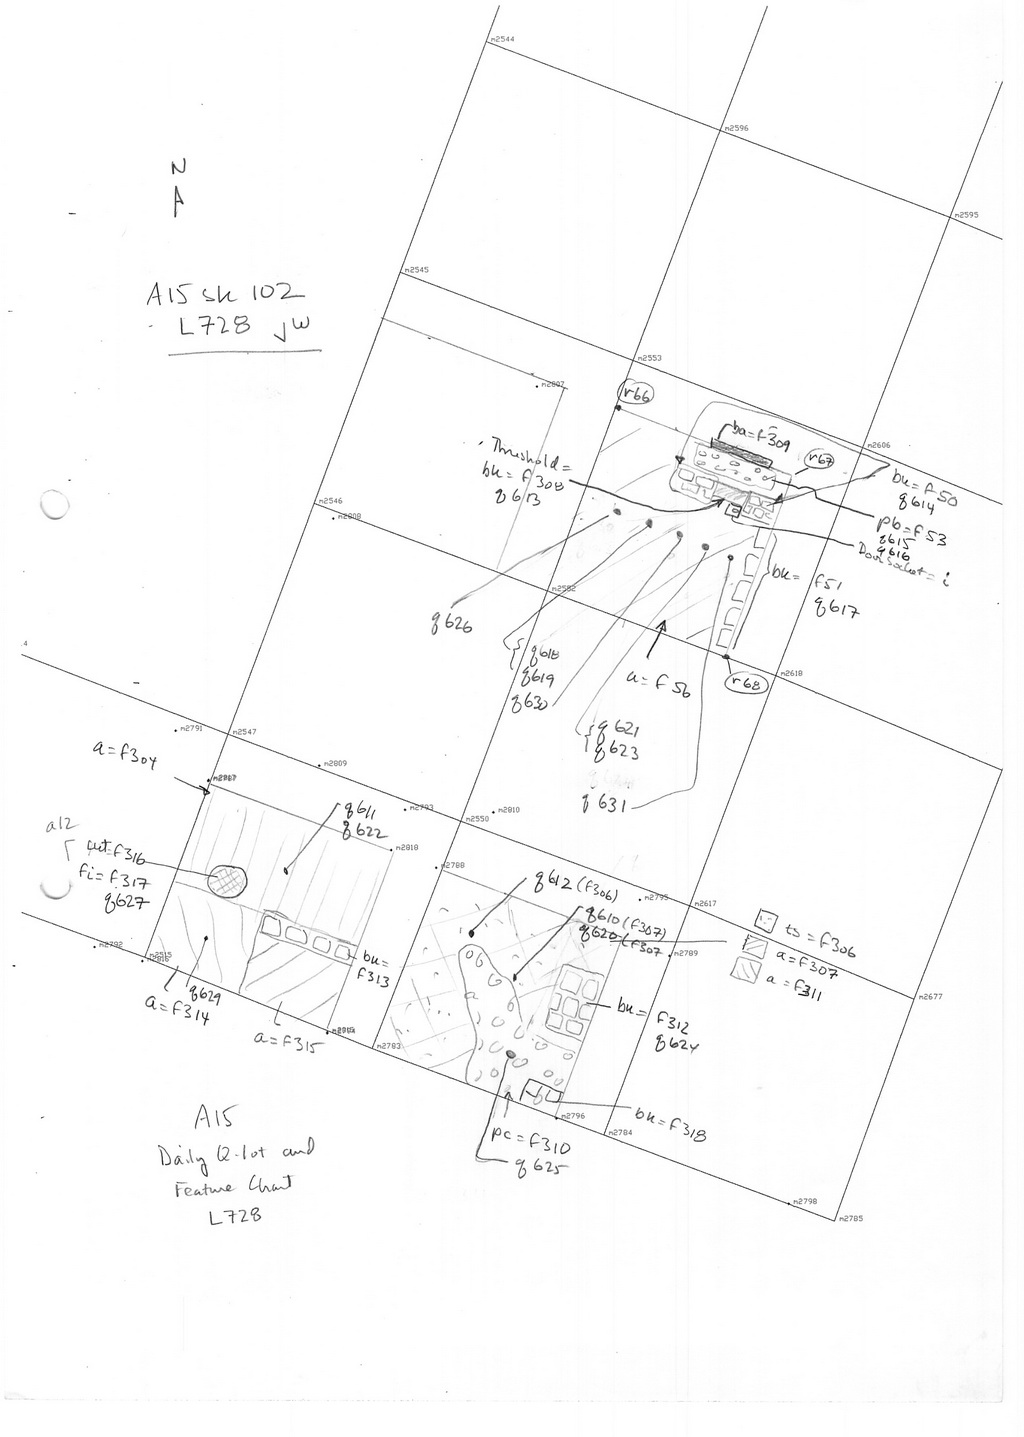 m2544
m2596
m2595
N
A15 sk 102
L728 JW
m2545
m2553
m2807
r66
ba=f309
m2606
r67
Threshold=
bk = f308
q613
bk=f50
q614
pb=f53
q615
q616
Door socket = i
m2546
m2808
m2552
bk= f51
q617
q626
q618
q619
q630
a=f56
r68
m2618
q621
q623
q631
m2791
m2547
m2809
a=f304
m2793
m2810
m2550
q611
q622
m2818
m2788
a12
fi=f317
q627
q612 (f306)
q610 (f307)
q620 (f307
m2795
m2617
ts = f306
a=f307
a=f311
m2789
m2792
m2515
bk=
f313
q629
a=f314
a=f315
m2783
bk= f312
q624
m2677
m2796
bk=f318
m2784
pc=f310
q625
m2798
m2785
A15
Daily Q-lot and
Feature Chart
L728